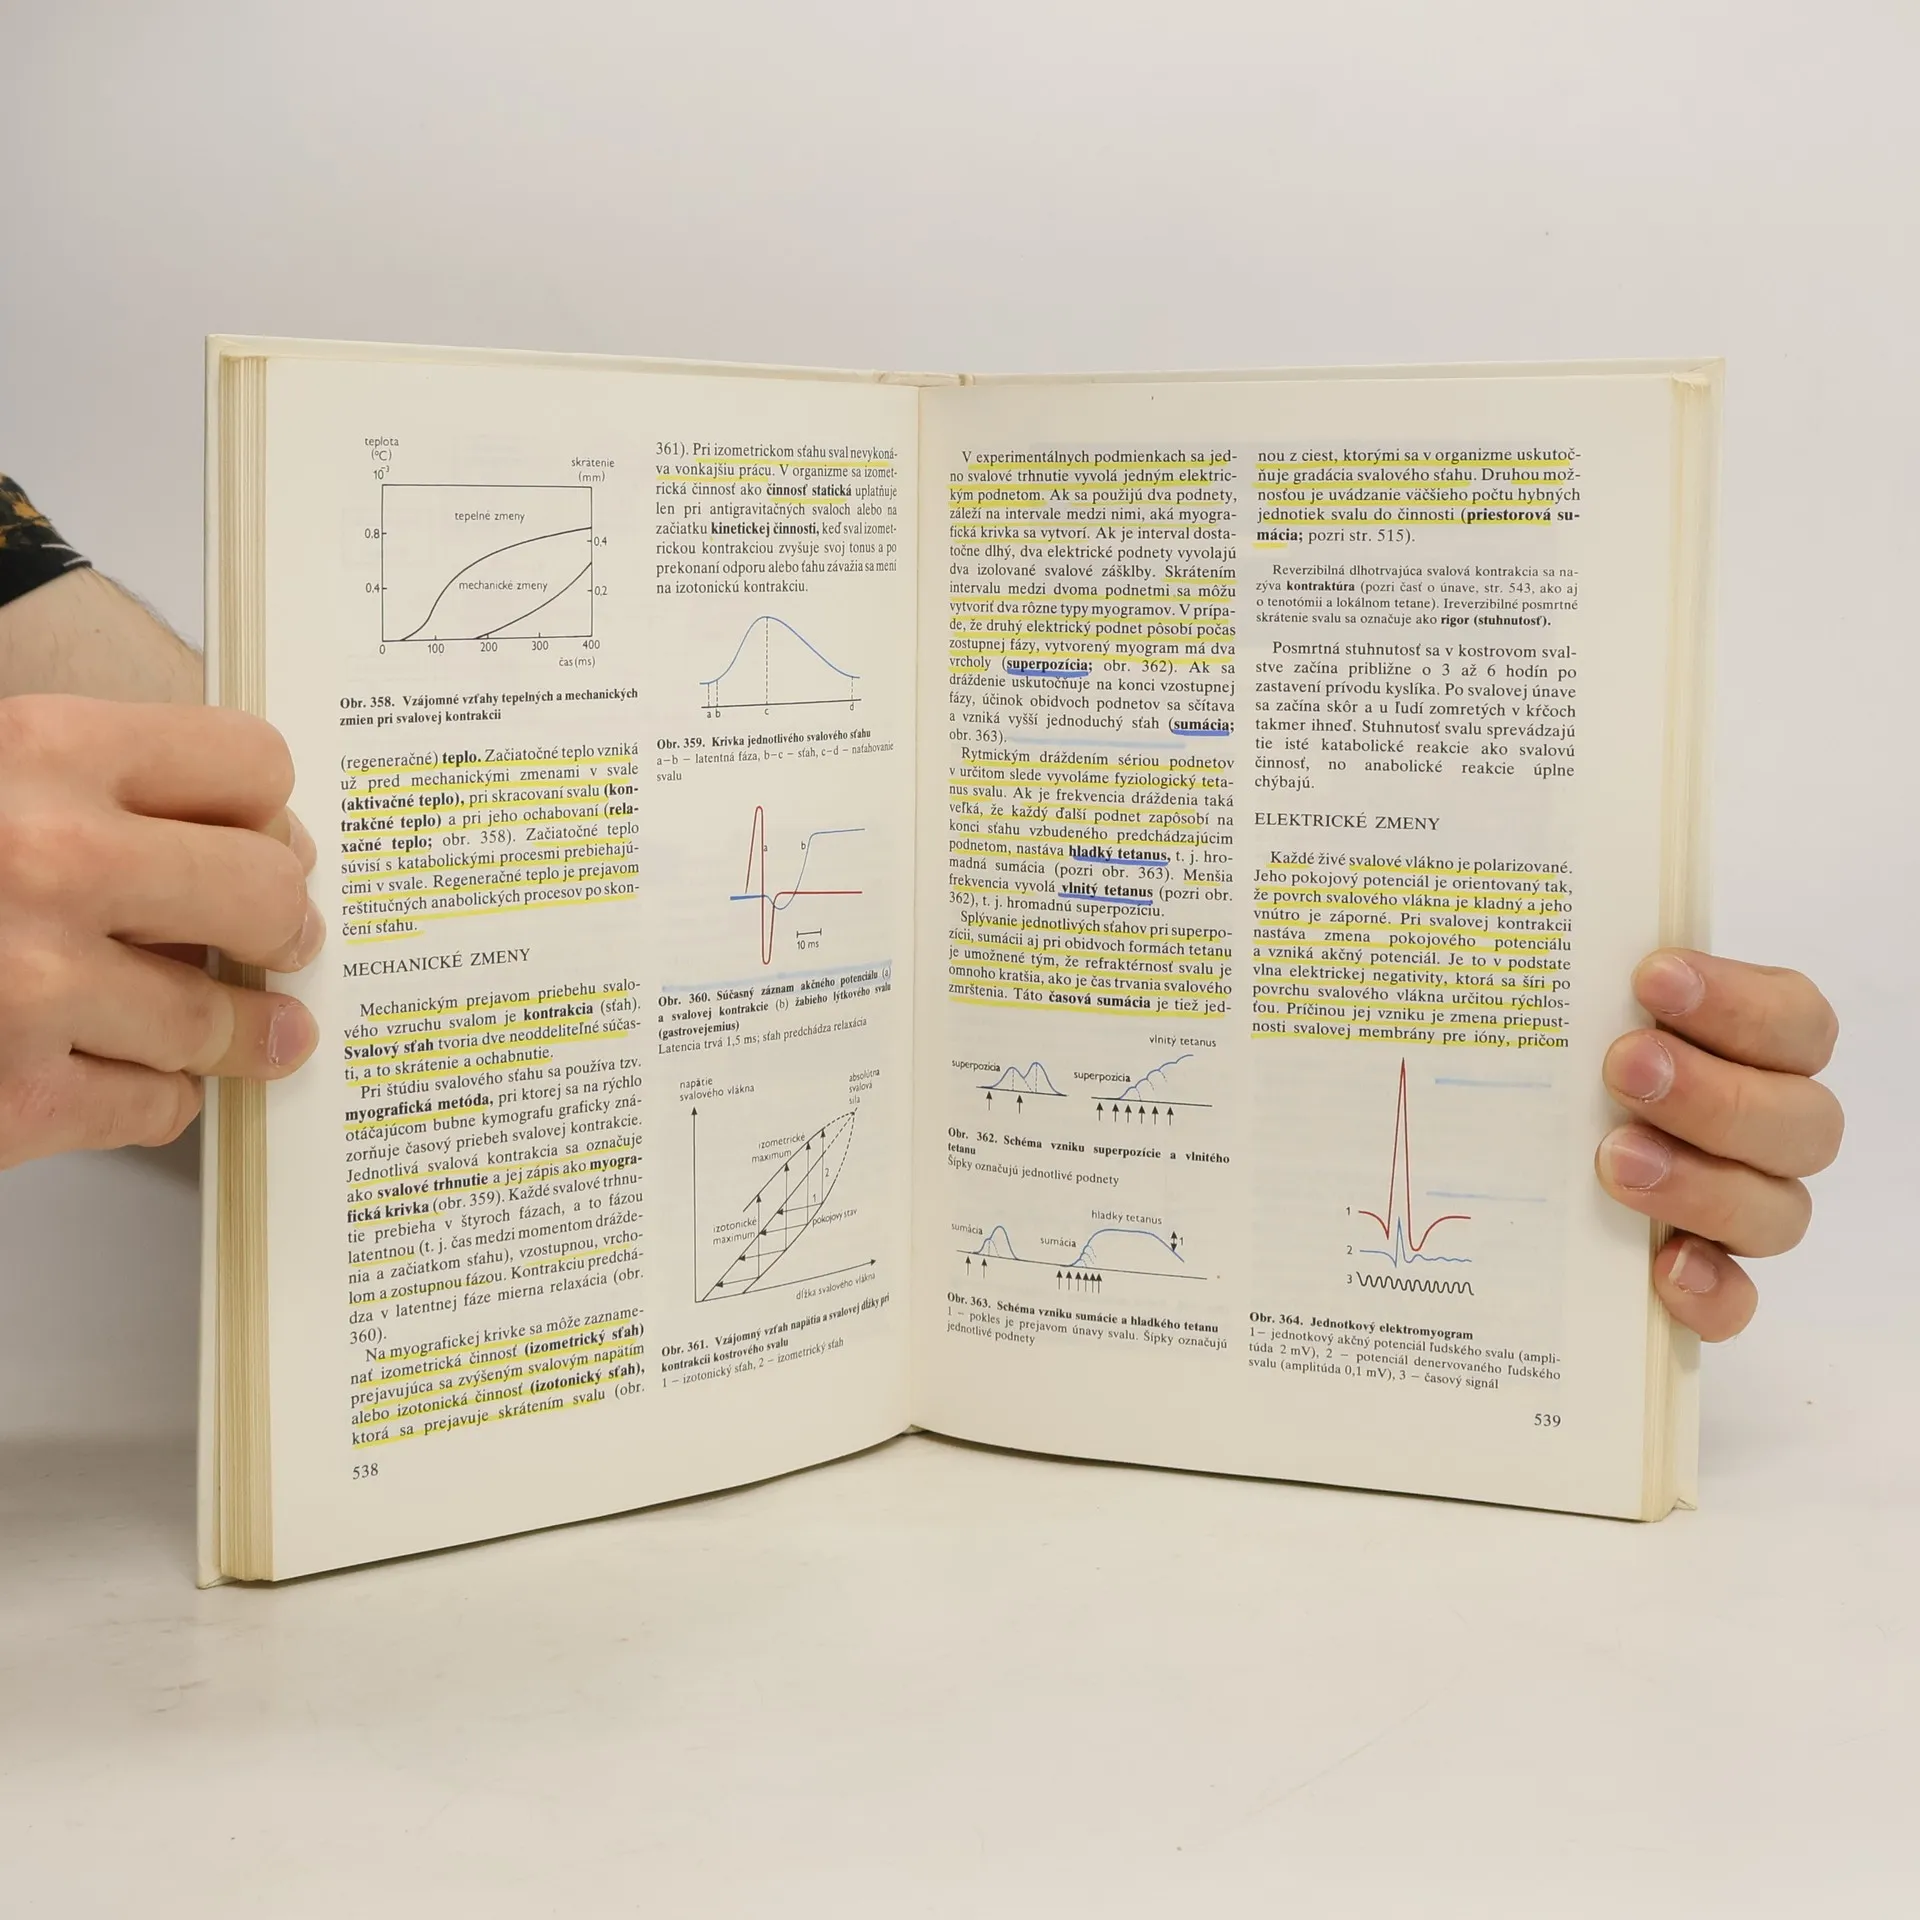 teplota
(°C)
10⁻³
skrátenie
(mm)
tepelné zmeny
0.8
0,4
mechanické zmeny
0.4
0,2
0
100
200
300
400
čas (ms)
Obr. 358. Vzájomné vzťahy tepelných a mechanických
zmien pri svalovej kontrakcii
(regeneračné) teplo. Začiatočné teplo vzniká
už pred mechanickými zmenami v svale
(aktivačné teplo), pri skracovaní svalu (kon-
trakčné teplo) a pri jeho ochabovaní (rela-
xačné teplo; obr. 358). Začiatočné teplo
súvisí s katabolickými procesmi prebiehajú-
cimi v svale. Regeneračné teplo je prejavom
reštitučných anabolických procesov po skon-
čení sťahu.
MECHANICKÉ ZMENY
Mechanickým prejavom priebehu svalo-
vého vzruchu svalom je kontrakcia (sťah).
Svalový sťah tvoria dve neoddeliteľné súčas-
ti, a to skrátenie a ochabnutie.
Pri štúdiu svalového sťahu sa používa tzv.
myografická metóda, pri ktorej sa na rýchlo
otáčajúcom bubne kymografu graficky zná-
zorňuje časový priebeh svalovej kontrakcie.
Jednotlivá svalová kontrakcia sa označuje
ako svalové trhnutie a jej zápis ako myogra-
fická krivka (obr. 359). Každé svalové trhnu-
tie prebieha v štyroch fázach, a to fázou
latentnou (t. j. čas medzi momentom drážde-
nia a začiatkom sťahu), vzostupnou, vrcho-
lom a zostupnou fázou. Kontrakciu predchá-
dza v latentnej fáze mierna relaxácia (obr.
360).
Na myografickej krivke sa môže zazname-
nať izometrická činnosť (izometrický sťah)
prejavujúca sa zvýšeným svalovým napätím
alebo izotonická činnosť (izotonický sťah),
ktorá sa prejavuje skrátením svalu (obr.
538
361). Pri izometrickom sťahu sval nevykoná-
va vonkajšiu prácu. V organizme sa izomet-
rická činnosť ako činnosť statická uplatňuje
len pri antigravitačných svaloch alebo na
začiatku kinetickej činnosti, keď sval izomet-
rickou kontrakciou zvyšuje svoj tonus a po
prekonaní odporu alebo ťahu závažia sa mení
na izotonickú kontrakciu.
a b
c
d
Obr. 359. Krivka jednotlivého svalového sťahu
a–b – latentná fáza, b–c – sťah, c–d – naťahovanie
svalu
a
b
10 ms
Obr. 360. Súčasný záznam akčného potenciálu (a)
a svalovej kontrakcie (b) žabieho lýtkového svalu
(gastrovejemius)
Latencia trvá 1,5 ms; sťah predchádza relaxácia
napätie
svalového vlákna
absolútna
svalová
sila
izometrické
maximum
2
1
izotonické
maximum
pokojový stav
dĺžka svalového vlákna
Obr. 361. Vzájomný vzťah napätia a svalovej dĺžky pri
kontrakcii kostrového svalu
1 – izotonický sťah, 2 – izometrický sťah
V experimentálnych podmienkach sa jed-
no svalové trhnutie vyvolá jedným elektric-
kým podnetom. Ak sa použijú dva podnety,
záleží na intervale medzi nimi, aká myogra-
fická krivka sa vytvorí. Ak je interval dosta-
točne dlhý, dva elektrické podnety vyvolajú
dva izolované svalové zášklby. Skrátením
intervalu medzi dvoma podnetmi sa môžu
vytvoriť dva rôzne typy myogramov. V prípa-
de, že druhý elektrický podnet pôsobí počas
zostupnej fázy, vytvorený myogram má dva
vrcholy (superpozícia; obr. 362). Ak sa
dráždenie uskutočňuje na konci vzostupnej
fázy, účinok obidvoch podnetov sa sčítava
a vzniká vyšší jednoduchý sťah (sumácia;
obr. 363).
Rytmickým dráždením sériou podnetov
v určitom slede vyvoláme fyziologický teta-
nus svalu. Ak je frekvencia dráždenia taká
veľká, že každý ďalší podnet zapôsobí na
konci sťahu vzbudeného predchádzajúcim
podnetom, nastáva hladký tetanus, t. j. hro-
madná sumácia (pozri obr. 363). Menšia
frekvencia vyvolá vlnitý tetanus (pozri obr.
362), t. j. hromadnú superpozíciu.
Splývanie jednotlivých sťahov pri superpo-
zícii, sumácii aj pri obidvoch formách tetanu
je umožnené tým, že refraktérnosť svalu je
omnoho kratšia, ako je čas trvania svalového
zmrštenia. Táto časová sumácia je tiež jed-
vlnitý tetanus
superpozícia
superpozícia
Obr. 362. Schéma vzniku superpozície a vlnitého
tetanu
Šípky označujú jednotlivé podnety
hladký tetanus
sumácia
sumácia
1
Obr. 363. Schéma vzniku sumácie a hladkého tetanu
1 – pokles je prejavom únavy svalu. Šípky označujú
jednotlivé podnety
nou z ciest, ktorými sa v organizme uskutoč-
ňuje gradácia svalového sťahu. Druhou mož-
nosťou je uvádzanie väčšieho počtu hybných
jednotiek svalu do činnosti (priestorová su-
mácia; pozri str. 515).
Reverzibilná dlhotrvajúca svalová kontrakcia sa na-
zýva kontraktúra (pozri časť o únave, str. 543, ako aj
o tenotómii a lokálnom tetane). Ireverzibilné posmrtné
skrátenie svalu sa označuje ako rigor (stuhnutosť).
Posmrtná stuhnutosť sa v kostrovom sval-
stve začína približne o 3 až 6 hodín po
zastavení prívodu kyslíka. Po svalovej únave
sa začína skôr a u ľudí zomretých v kŕčoch
takmer ihneď. Stuhnutosť svalu sprevádzajú
tie isté katabolické reakcie ako svalovú
činnosť, no anabolické reakcie úplne
chýbajú.
ELEKTRICKÉ ZMENY
Každé živé svalové vlákno je polarizované.
Jeho pokojový potenciál je orientovaný tak,
že povrch svalového vlákna je kladný a jeho
vnútro je záporné. Pri svalovej kontrakcii
nastáva zmena pokojového potenciálu
a vzniká akčný potenciál. Je to v podstate
vlna elektrickej negativity, ktorá sa šíri po
povrchu svalového vlákna určitou rýchlos-
ťou. Príčinou jej vzniku je zmena priepust-
nosti svalovej membrány pre ióny, pričom
1
2
3
Obr. 364. Jednotkový elektromyogram
1 – jednotkový akčný potenciál ľudského svalu (ampli-
túda 2 mV), 2 – potenciál denervovaného ľudského
svalu (amplitúda 0,1 mV), 3 – časový signál
539